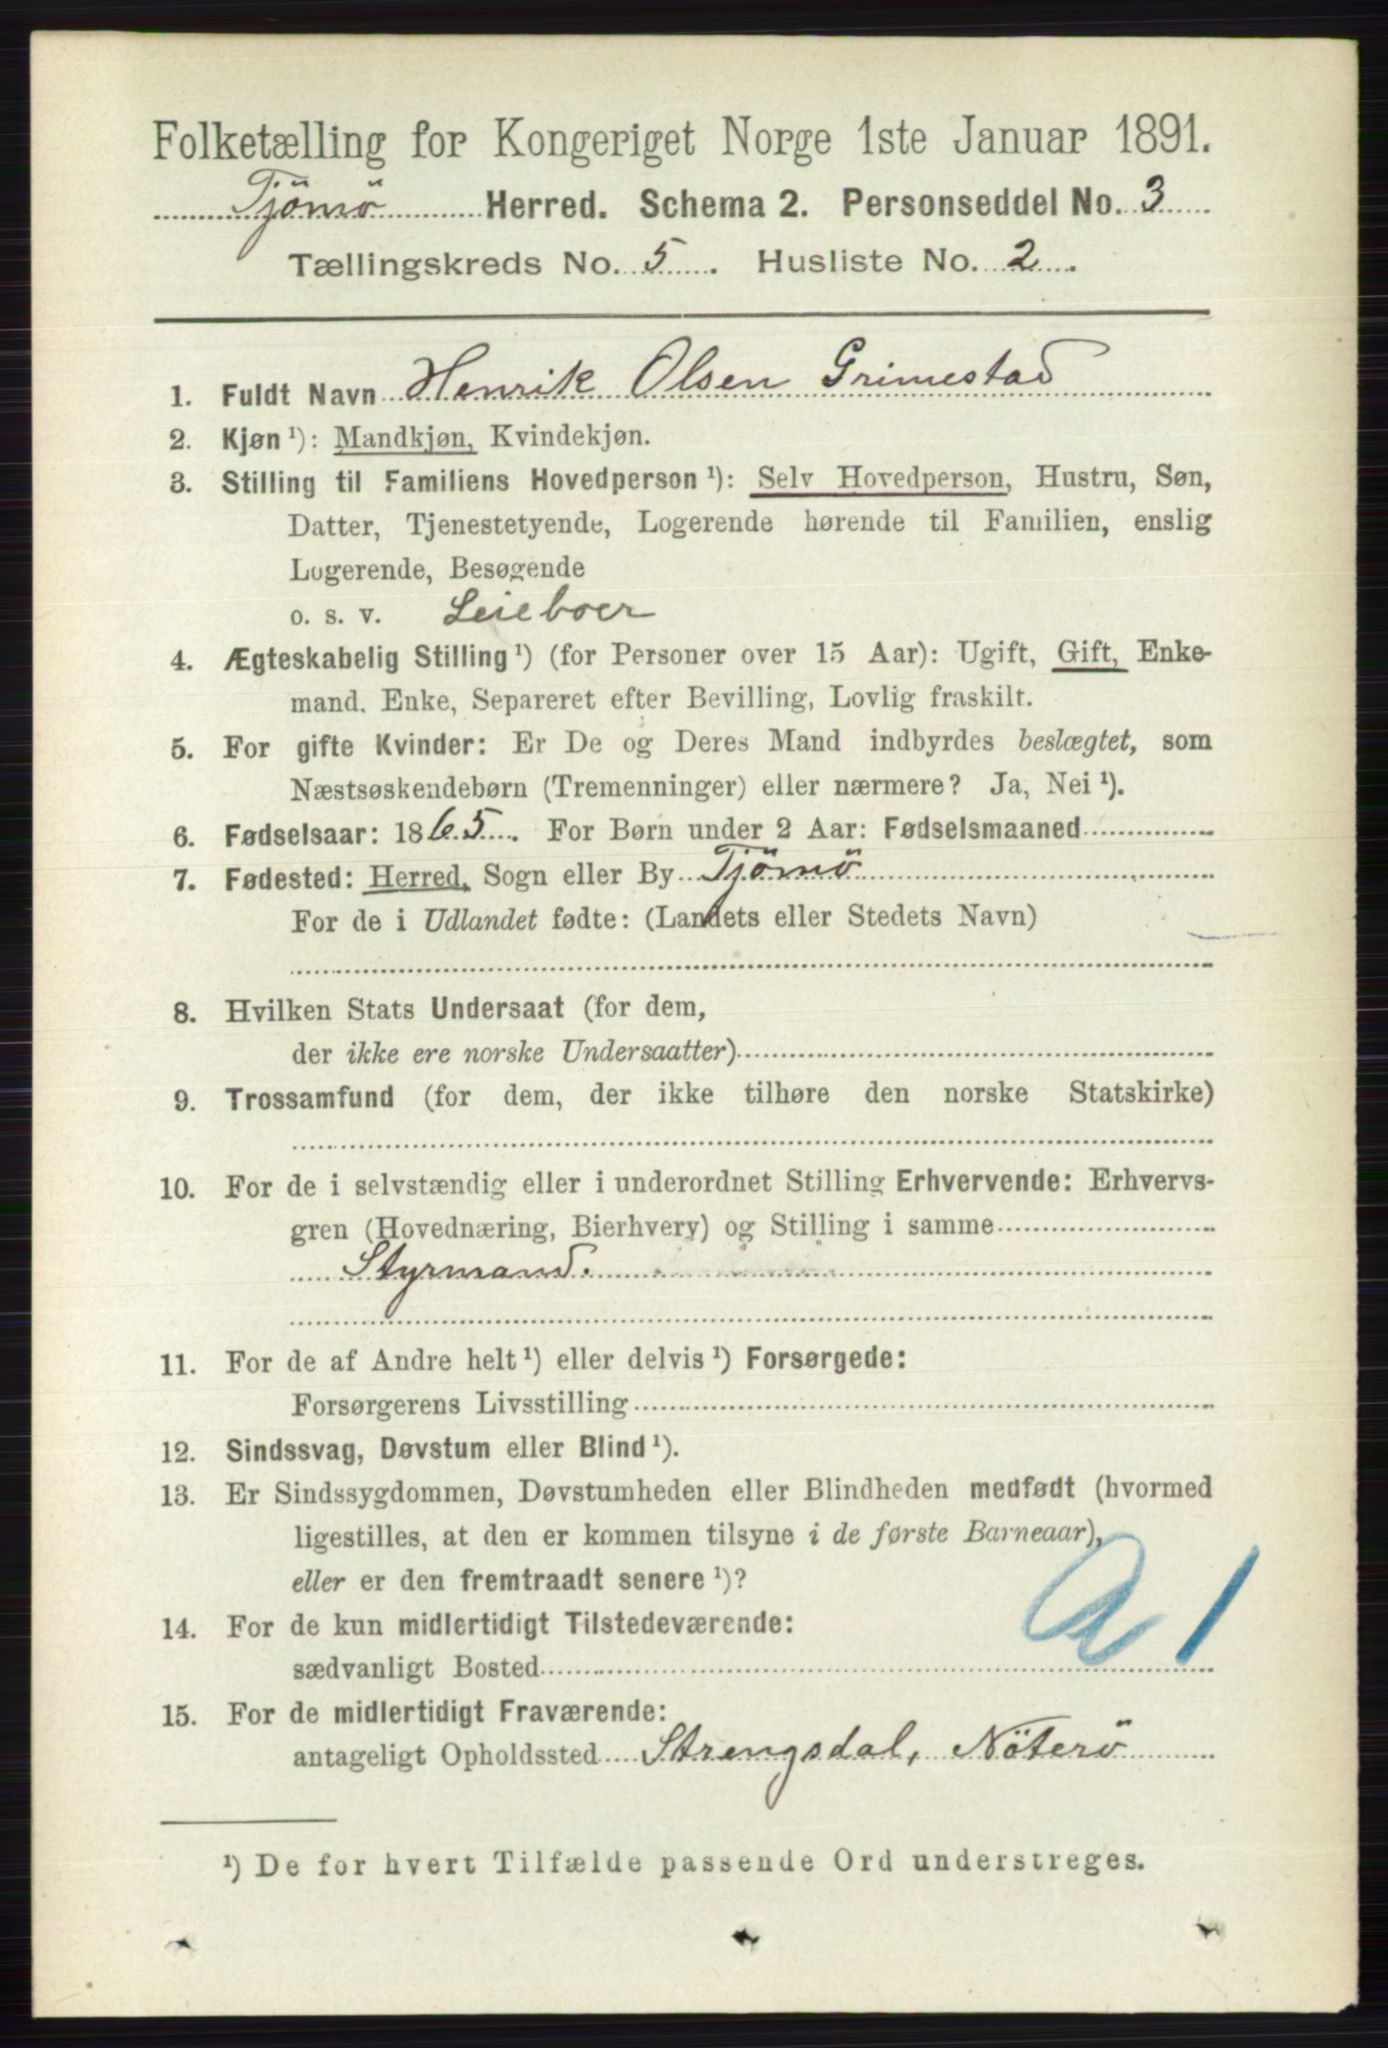 Folketælling for Kongeriget Norge 1ste Januar 1891.
Tjömö Herred. Schema 2. Personseddel No. 3
Tællingskreds No. 5. Husliste No. 2.
1. Fuldt Navn Henrik Olsen Grimestad
2. Kjøn ¹): Mandkjøn, Kvindekjøn.
3. Stilling til Familiens Hovedperson ¹): Selv Hovedperson, Hustru, Søn,
Datter, Tjenestetyende, Logerende hørende til Familien, enslig
Logerende, Besøgende
o. s. v. Leieboer
4. Ægteskabelig Stilling ¹) (for Personer over 15 Aar): Ugift, Gift, Enke-
mand, Enke, Separeret efter Bevilling, Lovlig fraskilt.
5. For gifte Kvinder: Er De og Deres Mand indbyrdes beslægtet, som
Næstsøskendebørn (Tremenninger) eller nærmere? Ja, Nei ¹).
6. Fødselsaar: 1865. For Børn under 2 Aar: Fødselsmaaned
7. Fødested: Herred, Sogn eller By Tjömö
For de i Udlandet fødte: (Landets eller Stedets Navn)
8. Hvilken Stats Undersaat (for dem,
der ikke ere norske Undersaatter)
9. Trossamfund (for dem, der ikke tilhøre den norske Statskirke)
10. For de i selvstændig eller i underordnet Stilling Erhvervende: Erhvervs-
gren (Hovednæring, Bierhverv) og Stilling i samme
Styrmand.
11. For de af Andre helt ¹) eller delvis ¹) Forsørgede:
Forsørgerens Livsstilling
12. Sindssvag, Døvstum eller Blind ¹).
13. Er Sindssygdommen, Døvstumheden eller Blindheden medfødt (hvormed
ligestilles, at den er kommen tilsyne i de første Barneaar),
eller er den fremtraadt senere ¹)?
a 1
14. For de kun midlertidigt Tilstedeværende:
sædvanligt Bosted
15. For de midlertidigt Fraværende:
antageligt Opholdssted Strengsdal, Nöterö
¹) De for hvert Tilfælde passende Ord understreges.